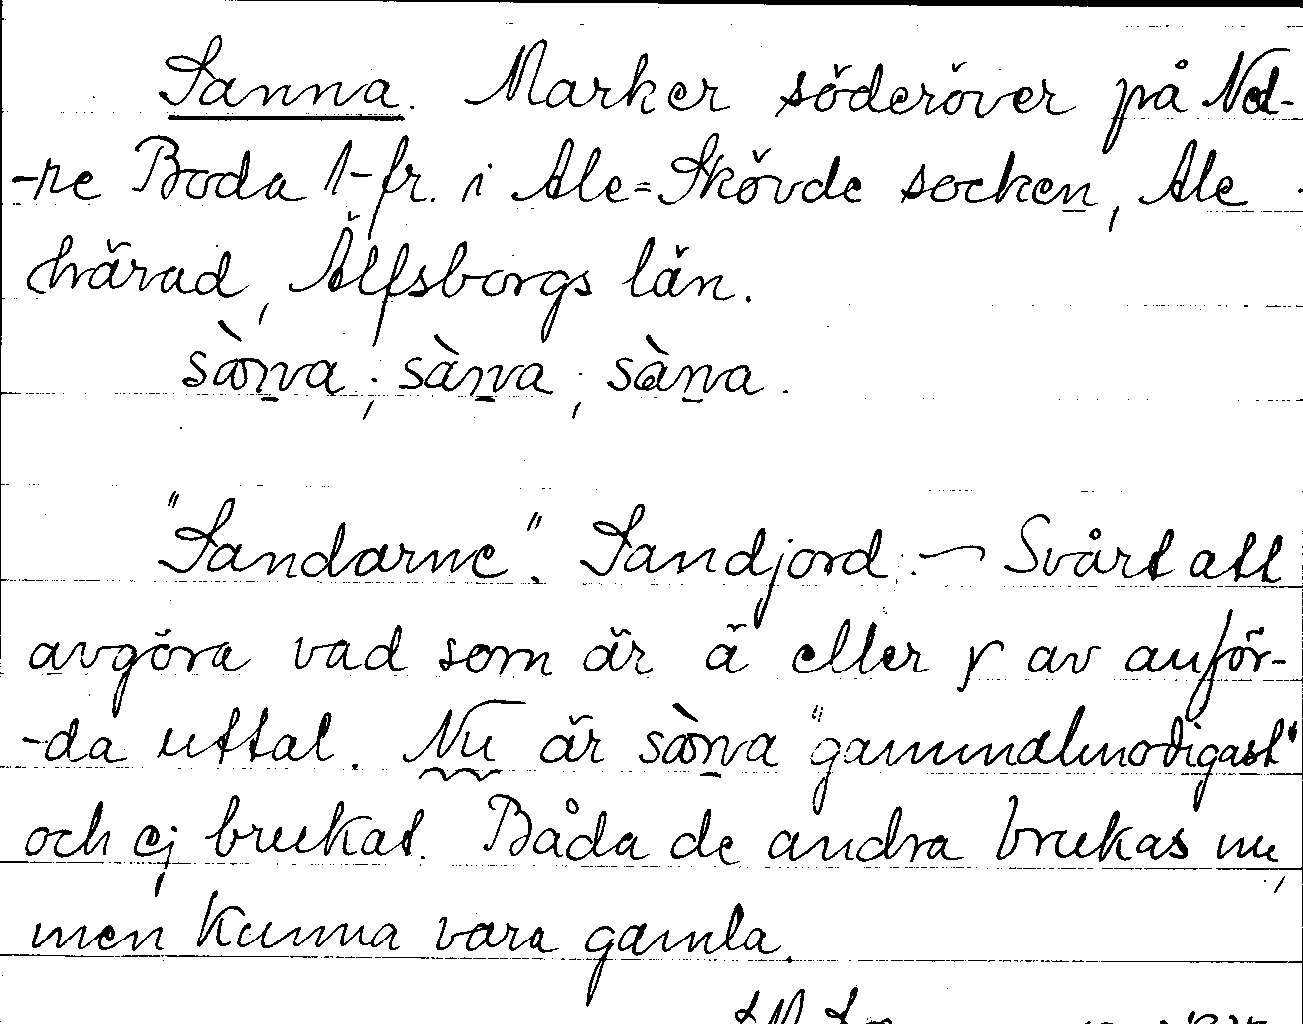 Sanna. Marker söderöver på Ned-
-re Boda 1-fr. i Ale=Skövde socken, Ale
härad, Älfsborgs län.
sàn̲a ; sàn̲a ; sàn̲a .
"Sandarne". Sandjord. — Svårt att
avgöra vad som är ä eller y av anför-
-da uttal. Nu är sàn̲a "gammalmodigast"
och ej brukat. Båda de andra brukas nu,
men kunna vara gamla.